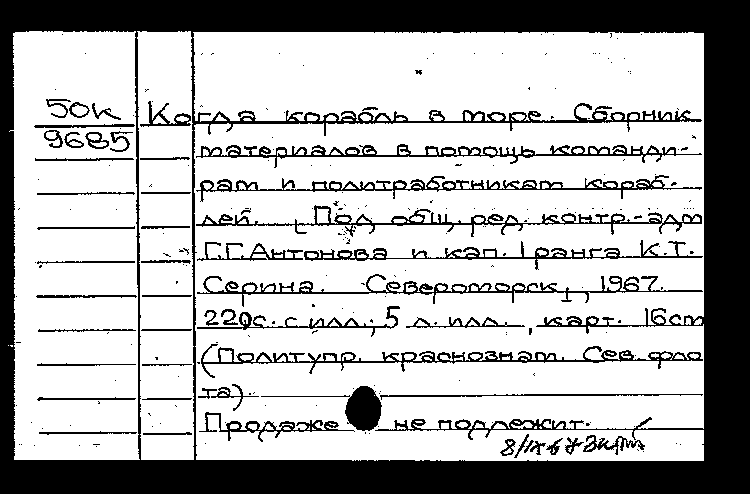 50к Когда корабль в море. Сборник
9685
материалов в помощь команди-
рам и политработникам кораб-
лей. [Под общ. ред. контр.-адм
Г.Г. Антонова и кап. I ранга К.Т.
Серина. Североморск], 1967.
220с. с илл.; 5 л. илл., карт. 16см
(Политупр. краснознам. Сев. фло
та)
Продаже не подлежит.
8/IX 67